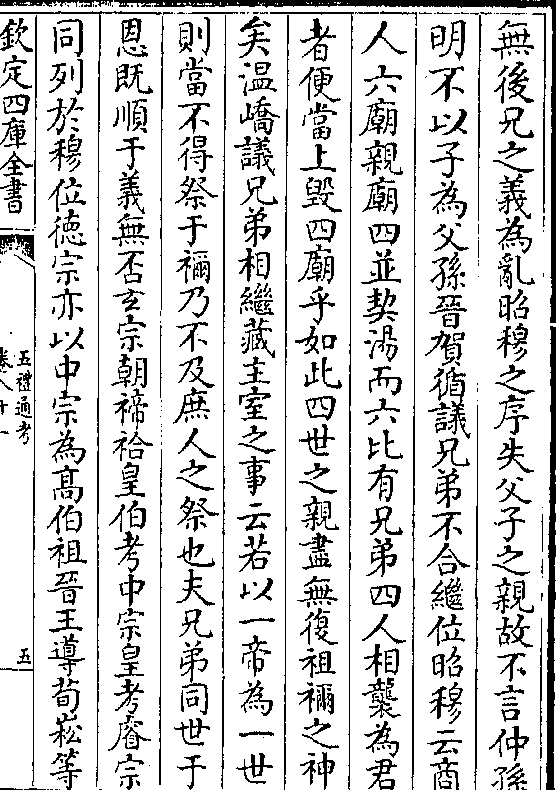 無後兄之義為亂昭穆之序失父子之親故不言仲孫
明不以子為父孫晉賀循議兄弟不合繼位昭穆云商
人六廟親廟四並契湯而六比有兄弟四人相襲為君
者便當上毀四廟乎如此四世之親盡無復祖禰之神
矣温嶠議兄弟相繼藏主室之事云若以一帝為一世
則當不得祭于禰乃不及庶人之祭也夫兄弟同世于
恩既順于義無否玄宗朝禘祫皇伯考中宗皇考睿宗
同列於穆位德宗亦以中宗為髙伯祖晉王導荀崧等
欽定四庫全書
五禮通考
卷八十一
五